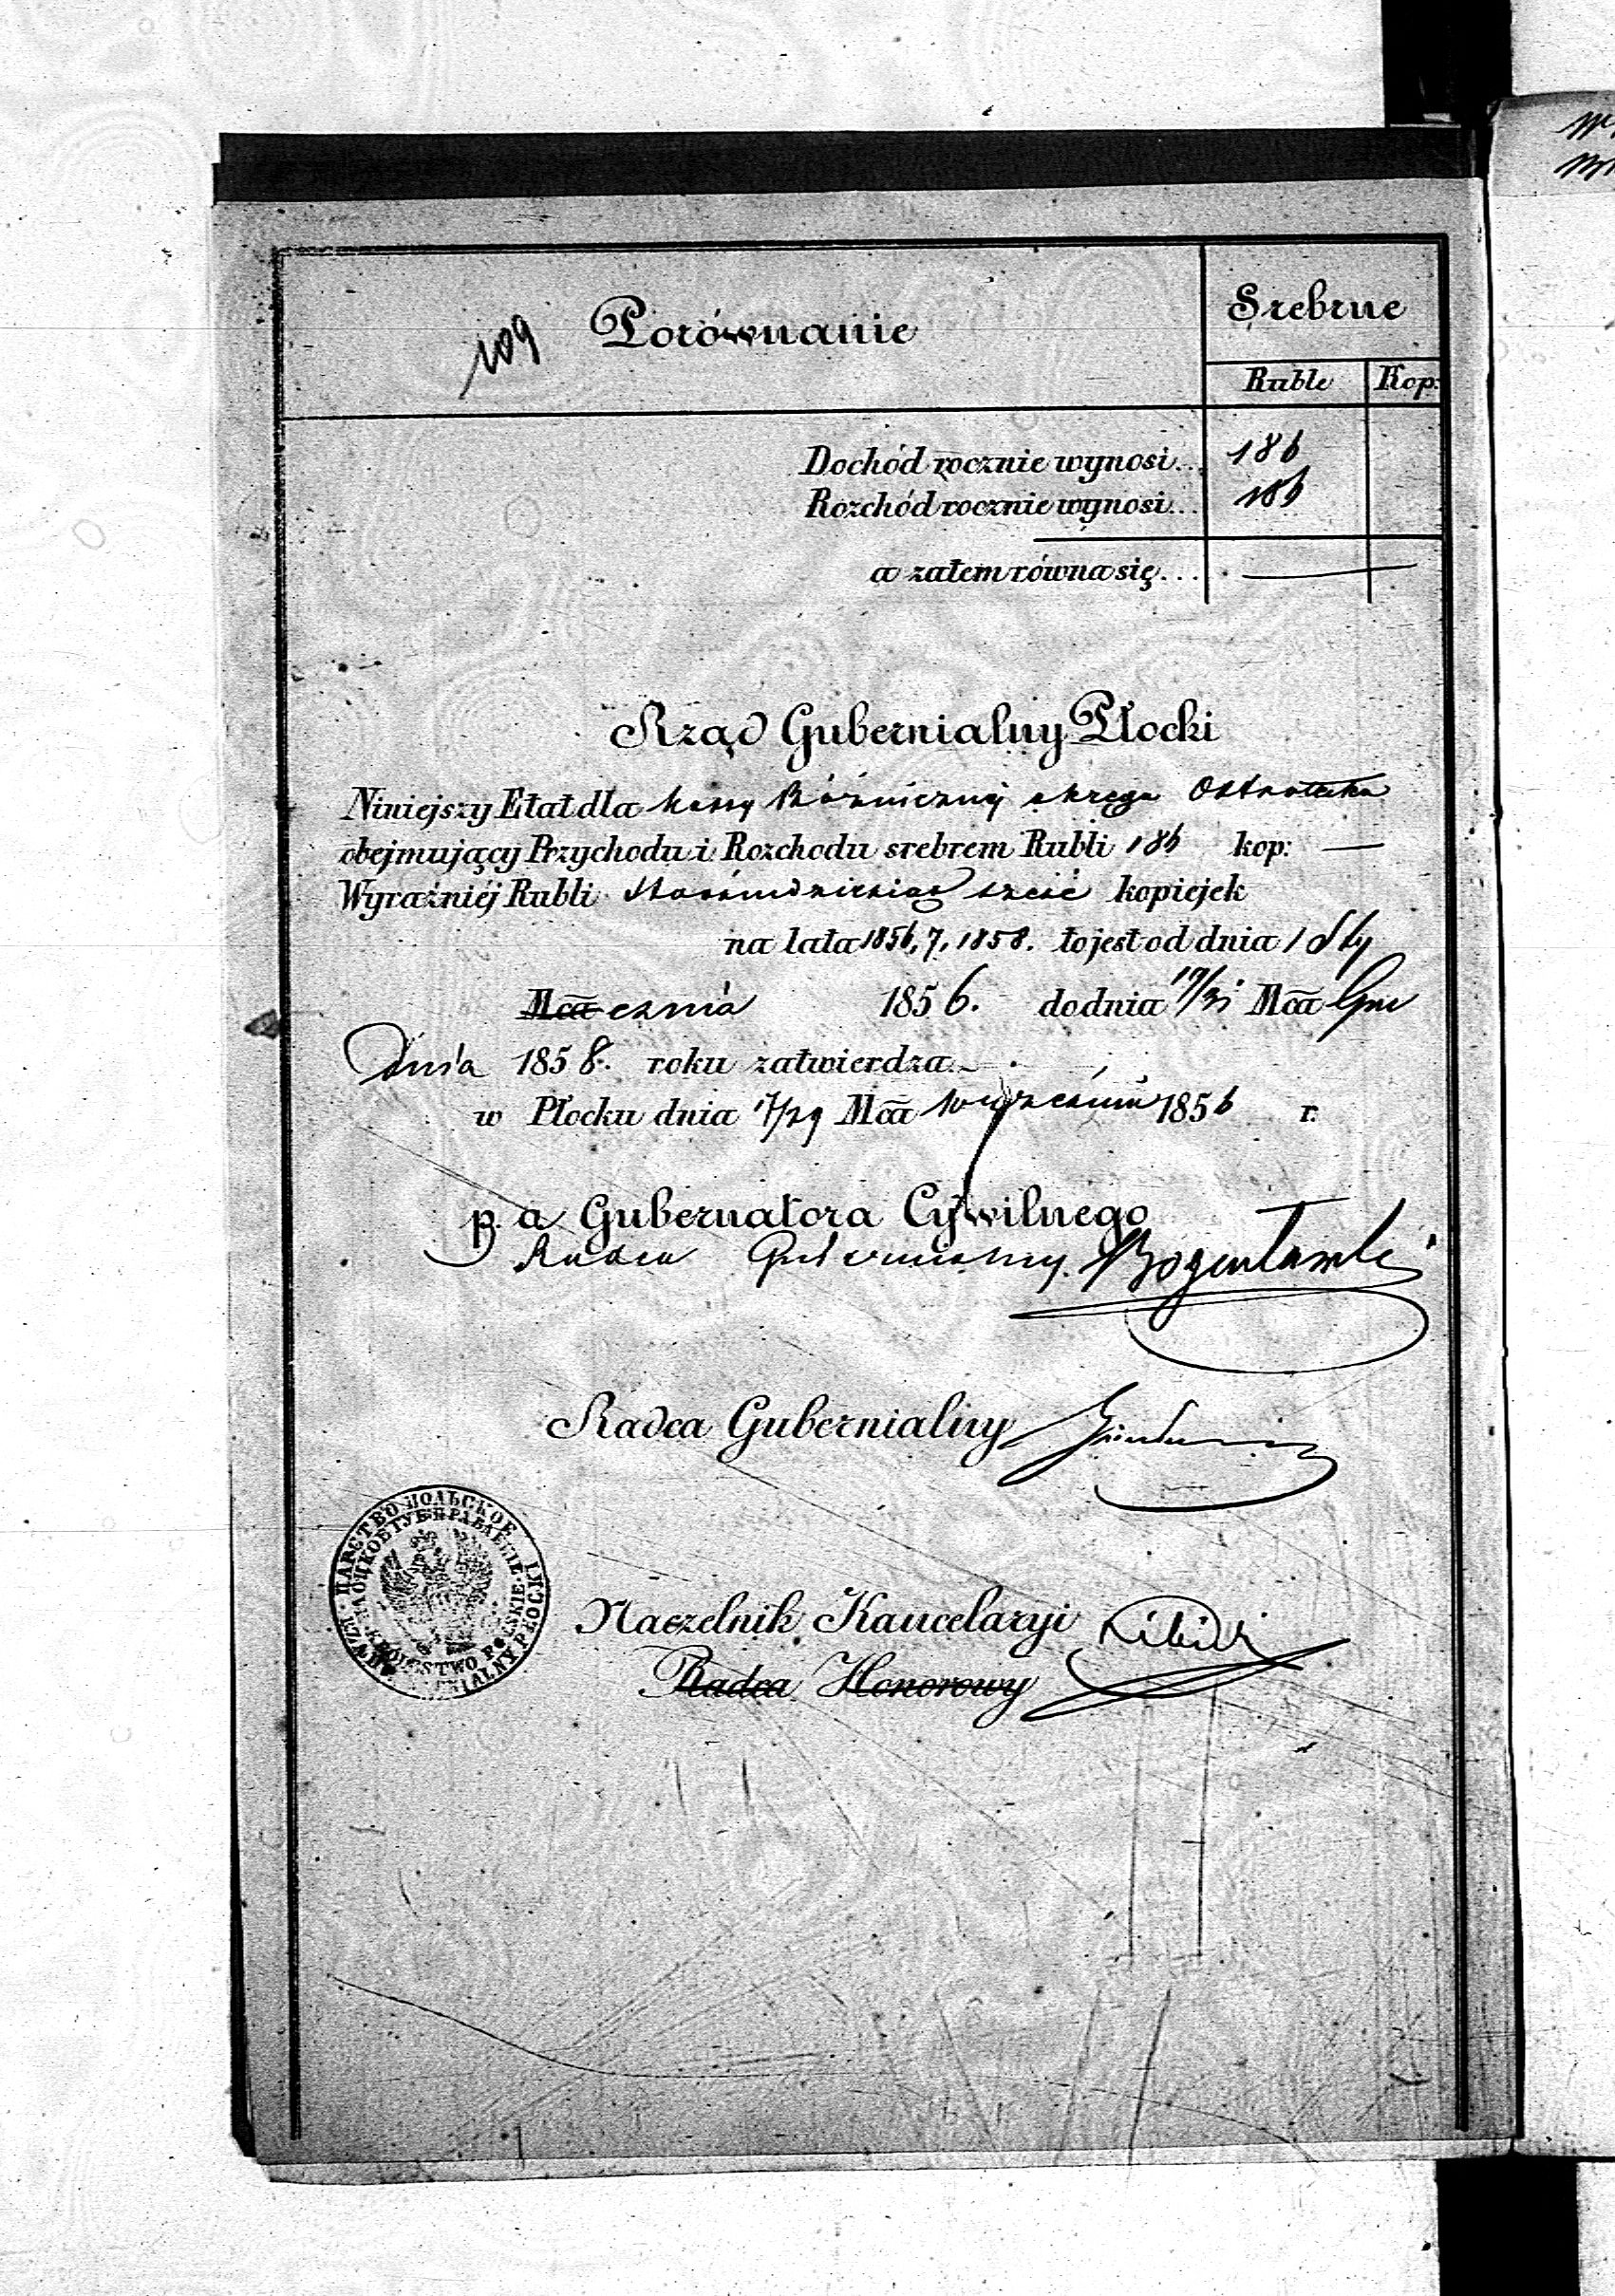 109 Porównanie
Srebrne
Ruble Kop:
Dochód rocznie wynosi... 186
Rozchód rocznie wynosi... 186
a zatem równa się....
Rząd Gubernialny Płocki
Niniejszy Etat dla kassy Bóżnicznej okręgu Ostrołęka
obejmujący Przychodu i Rozchodu srebrem Rubli 186 kop: —
Wyraźniéj Rubli Stoośmdziesiąt sześć kopiejek
na lata 1856, 7, 1858. to jest od dnia 1 Sty
Mca cznia 1856. do dnia 19/31 Mca Gru
dnia 1858. roku zatwierdza.
w Płocku dnia 17/29 Mca Września 1856 r.
p. a Gubernatora Cywilnego
Radca Gubernialny.
Radca Gubernialny
Naczelnik Kancelaryi
Radca Honorowy
ЦАРСТВО ПОЛЬСКОЕ
KRÓLESTWO POLSKIE